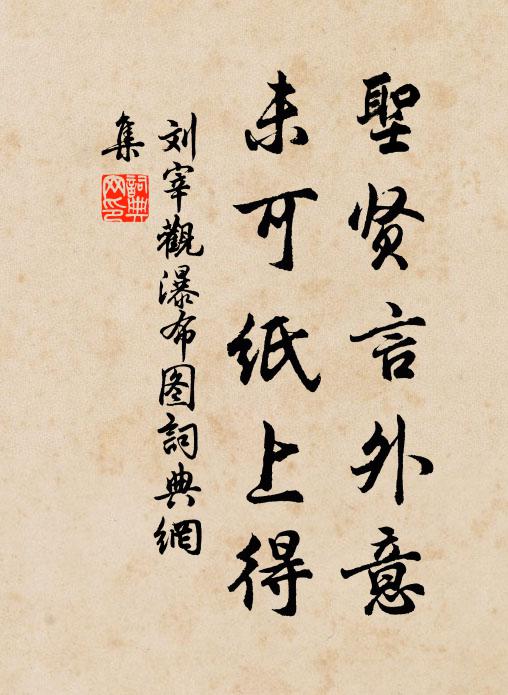 聖贤言外意
未可纸上得
刘宰觀瀑布图詞典網
集
詞典网印